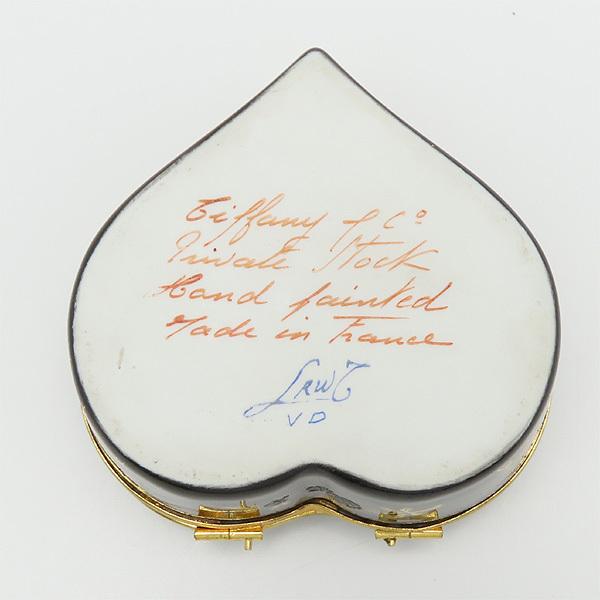 Tiffany & Co
Private Stock
Hand painted
Made in France
VD